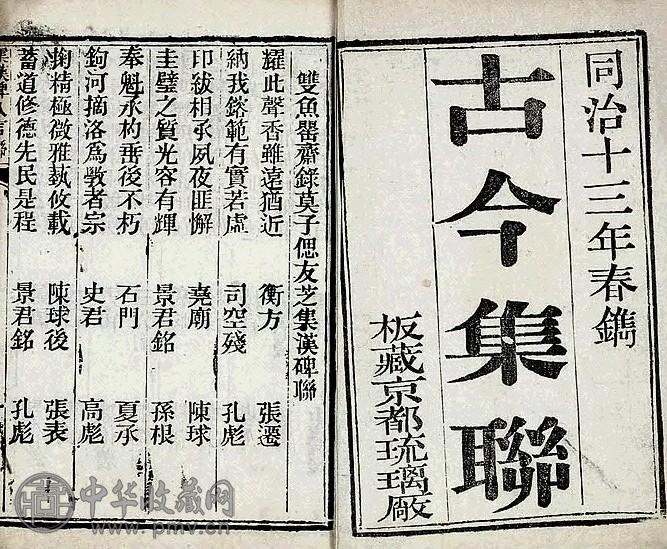 同治十三年春鐫
古今集聯
板藏京都琉璃廠
雙魚罌齋錄莫子偲友芝集漢碑聯
耀此聲香雖遠猶近 衡方 張遷
納我鎔範有實若虛 司空殘 孔彪
印紱相承夙夜匪懈 堯廟 陳球
圭璧之質光容有輝 景君銘 孫根
奉魁承杓垂後不朽 石門 夏承
鉤河摘洛為斆者宗 史君 高彪
掬精極微雅埶攸載 陳球後 張表
蓄道修德先民是程 景君銘 孔彪
中华收藏网
www.pmv.cn